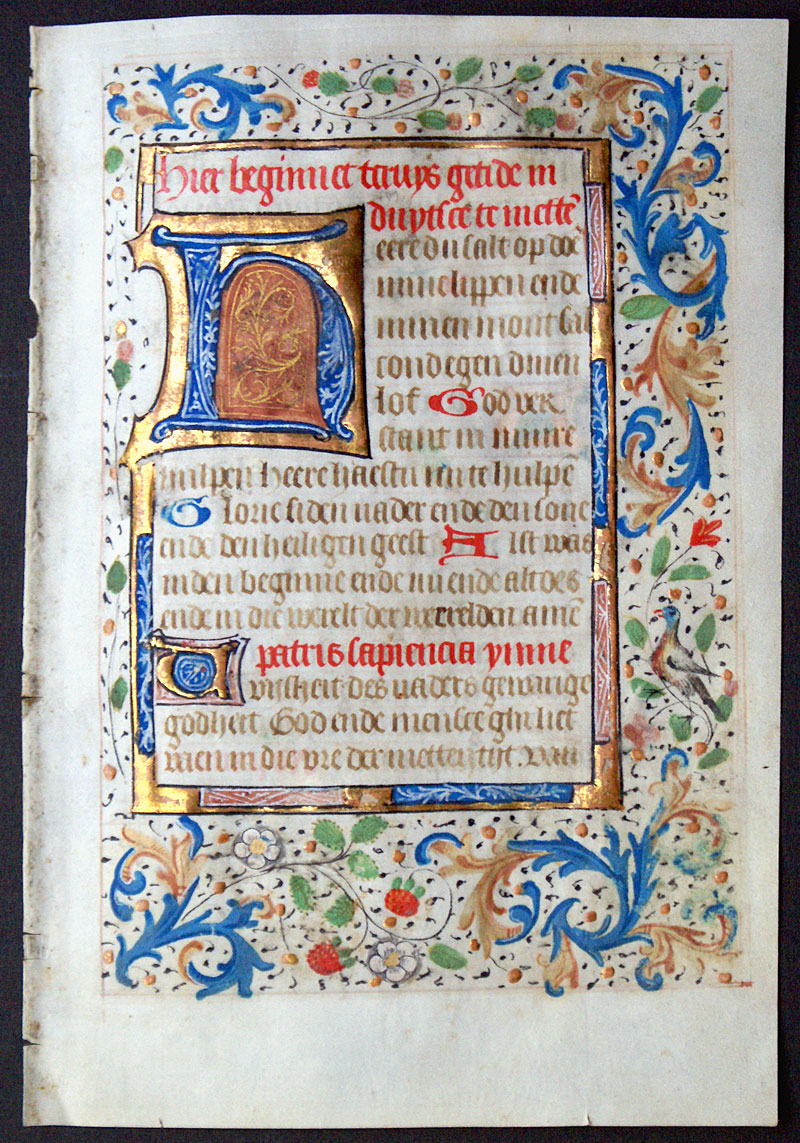 Hier beginnet tcruys getide in
duytsce te mettē
Heere du salt op doē
mine lippen ende
minen mont sal
condegen dinen
lof God ver
stant in mijnre
hulpen heere haestu mi te hulpē
Glorie si den vader ende den sone
ende den heiligen geest Alst was
in den beginne ende nu ende altoes
ende in die werelt der werelden amē
patris sapiencia ymne
Die wijsheit des vaders gewarige
godheit God ende mensce ghi liet
vaen in die vre der metten tijt. van